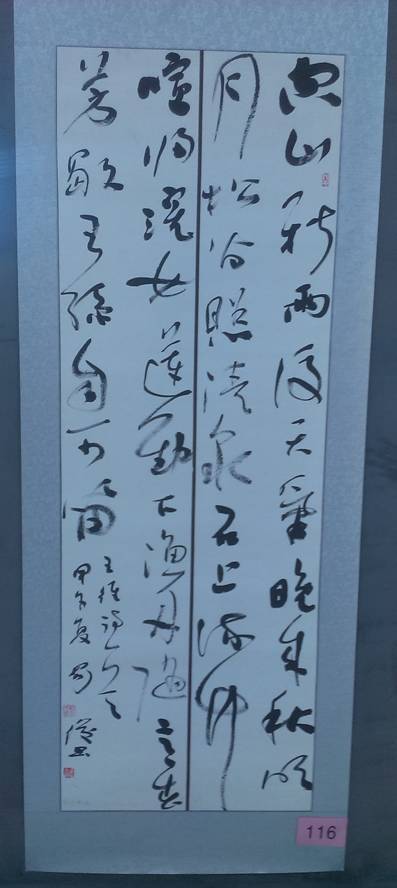 空山新雨後天氣晚来秋明
月松间照清泉石上流竹
喧归浣女蓮動下漁舟随意春
芳歇王孫自可留
王維詩
甲午夏
116